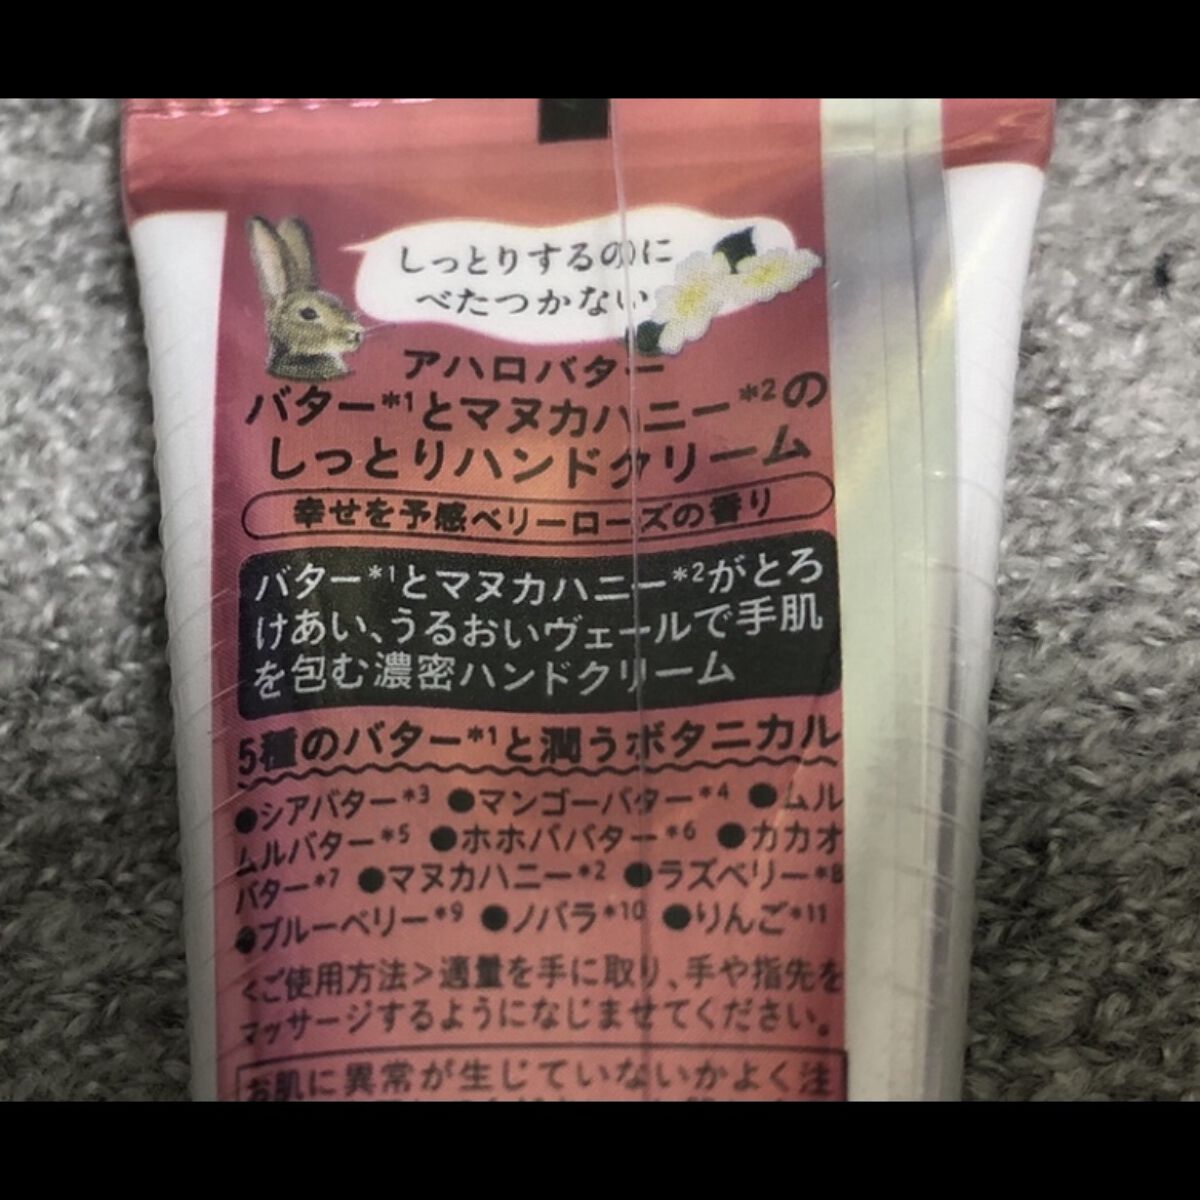 しっとりするのに
べたつかない
アハロバター
バター*1とマヌカハニー*2の
しっとりハンドクリーム
幸せを予感ベリーローズの香り
バター*1とマヌカハニー*2がとろ
けあい、うるおいヴェールで手肌
を包む濃密ハンドクリーム
5種のバター*1と潤うボタニカル
●シアバター*3 ●マンゴーバター*4 ●ムル
ムルバター*5 ●ホホババター*6 ●カカオ
バター*7 ●マヌカハニー*2 ●ラズベリー*8
●ブルーベリー*9 ●ノバラ*10 ●りんご*11
<ご使用方法>適量を手に取り、手や指先を
マッサージするようになじませてください。
お肌に異常が生じていないかよく注